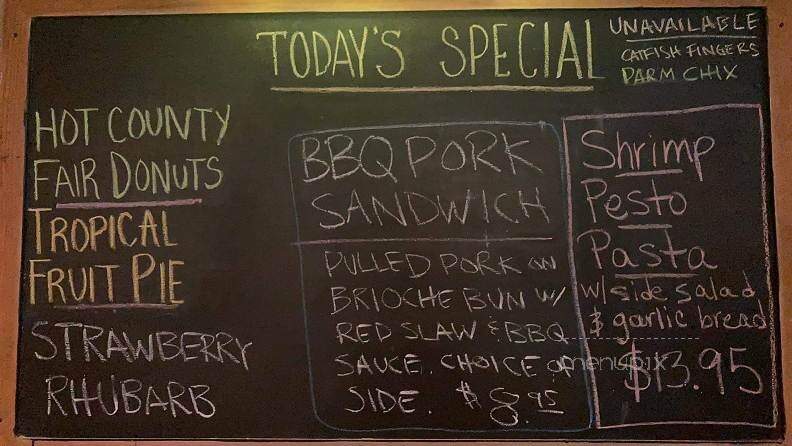 TODAY'S SPECIAL
UNAVAILABLE
CATFISH FINGERS
PARM CHIX
HOT COUNTY
FAIR DONUTS
TROPICAL
FRUIT PIE
STRAWBERRY
RHUBARB
BBQ PORK
SANDWICH
PULLED PORK ON
BRIOCHE BUN W/
RED SLAW & BBQ
SAUCE. CHOICE OF
SIDE. $8.95
Shrimp
Pesto
Pasta
w/ side salad
& garlic bread
$13.95
menupix